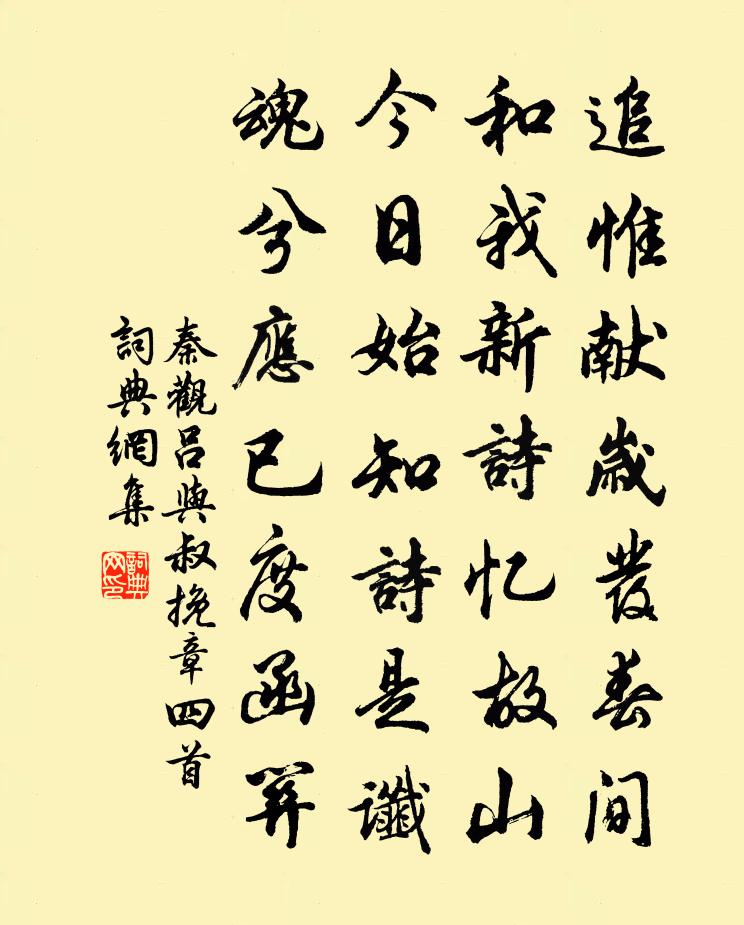 追惟献歲發春间
和我新詩忆故山
今日始知詩是讖
魂兮應已度函關
秦觀吕與叔挽章四首
詞典網集
詞典
网印